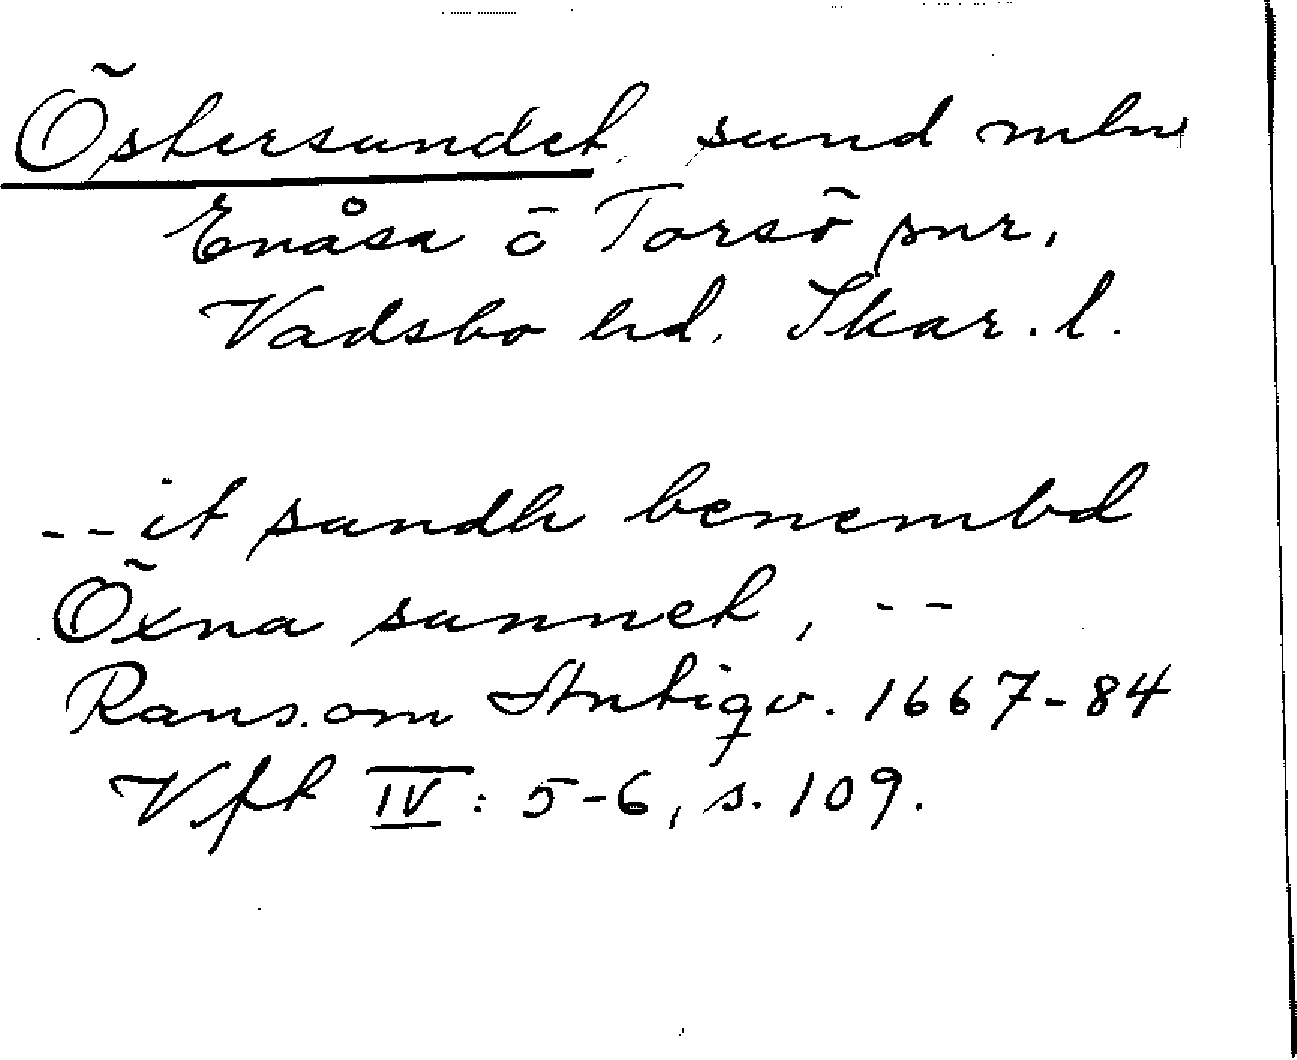 Östersundet sund mln
Enåsa o Torsö snr,
Vadsbo hd. Skar. l.
-- it sundh benembd
Öxna sunnet, --
Rans. om Antiqv. 1667-84
Vft IV: 5-6, s. 109.